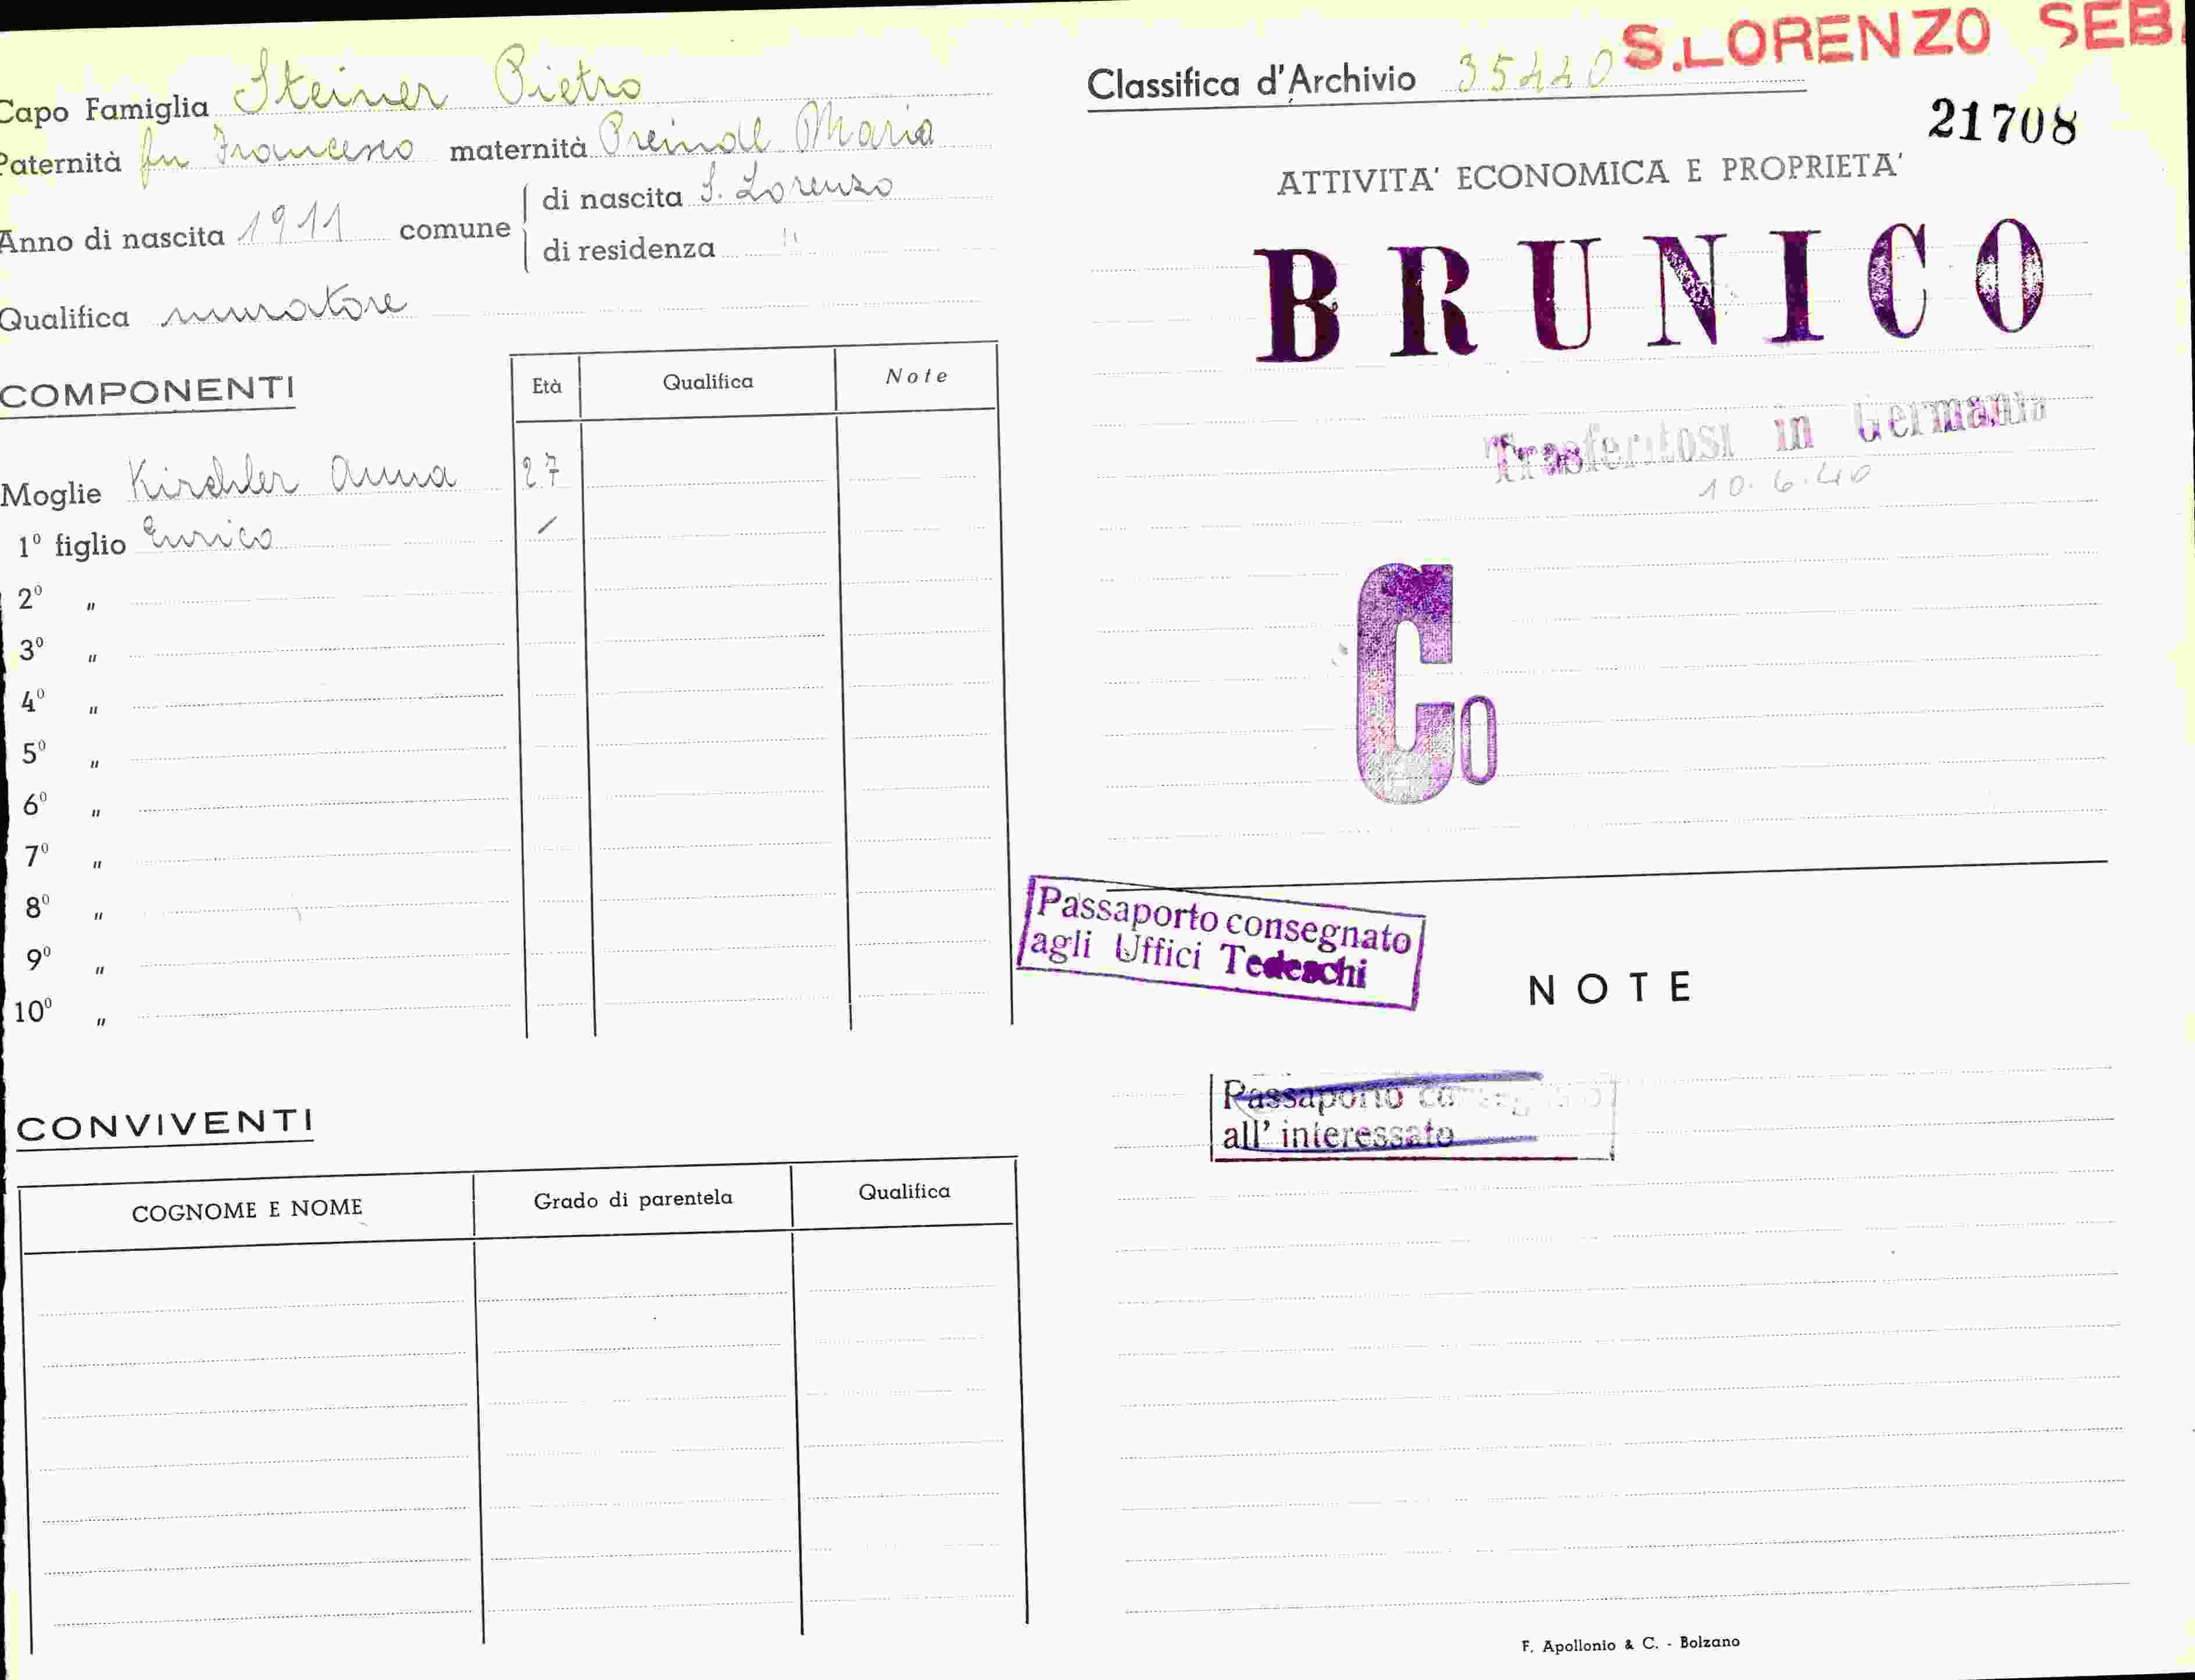 Capo Famiglia Steiner Pietro
Paternità fu Francesco maternità Preindl Maria
Anno di nascita 1911 comune
di nascita S. Lorenzo
di residenza "
Qualifica muratore
COMPONENTI
Età Qualifica Note
Moglie Kirchler Anna 27
1º figlio Enrico /
2º "
3º "
4º "
5º "
6º "
7º "
8º "
9º "
10º "
CONVIVENTI
COGNOME E NOME Grado di parentela Qualifica
S.LORENZO SEB.
Classifica d'Archivio 35440
21708
ATTIVITA' ECONOMICA E PROPRIETA'
BRUNICO
Trasferitosi in Germania
10.6.40
Co
Passaporto consegnato
agli Uffici Tedeschi
NOTE
Passaporto consegnato
all' interessato
F. Apollonio & C. - Bolzano